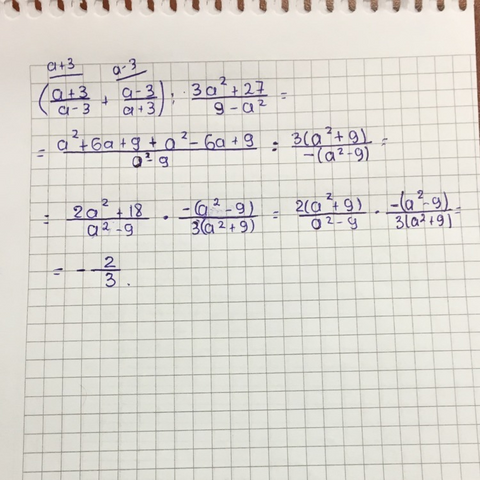 a+3 a-3
(a+3/a-3 + a-3/a+3) : 3a²+27/9-a² =
= a²+6a+9+a²-6a+9/a²-9 : 3(a²+9)/-(a²-9) =
= 2a²+18/a²-9 · -(a²-9)/3(a²+9) = 2(a²+9)/a²-9 · -(a²-9)/3(a²+9) =
= -2/3.